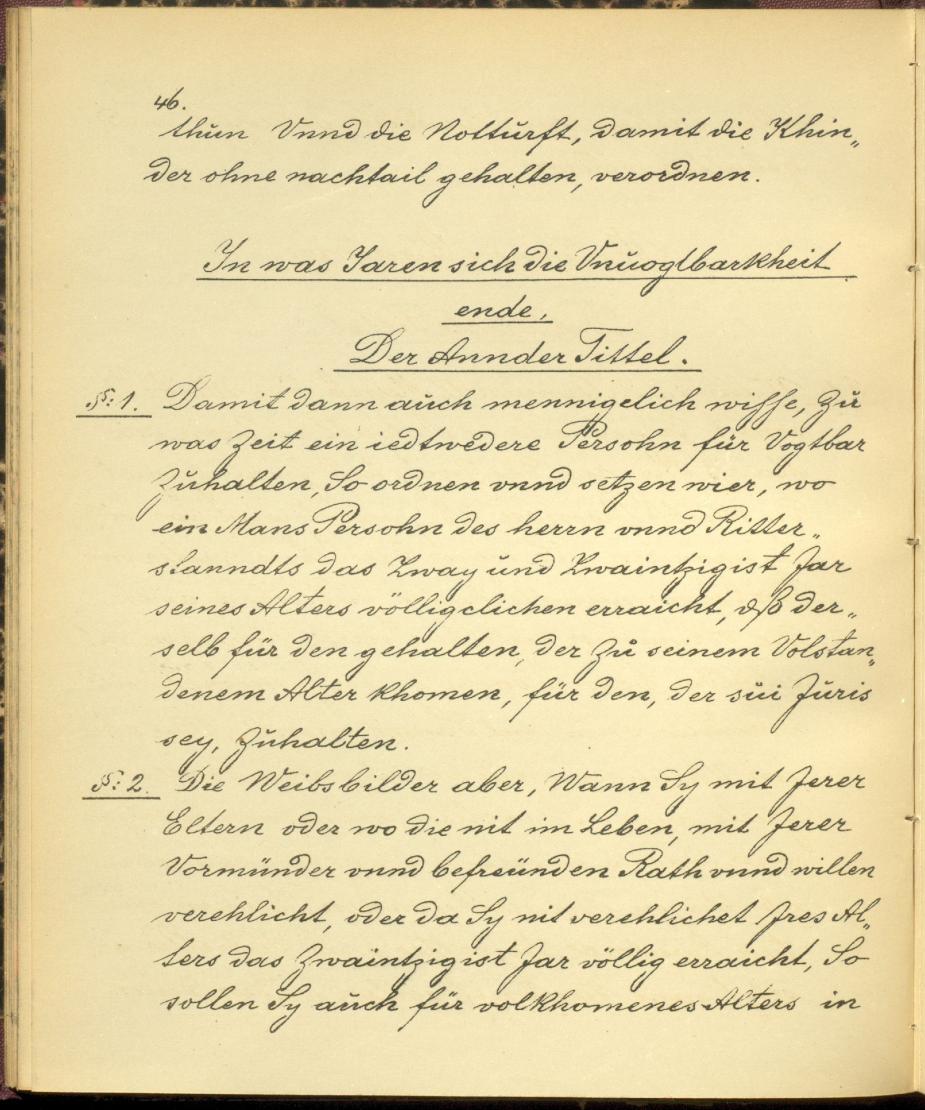 46.
thun Vnnd die Notturft, damit die Khin„
der ohne nachtail gehalten, verordnen.
In was Jaren sich die Vnuogtbarkheit
ende,
Der Annder Tittel.
§: 1. Damit dann auch mennigelich wisse, Zu
was Zeit ein iedtwedere Persohn für Vogtbar
Zuhalten, So ordnen vnnd setzen wier, wo
ein Mans Persohn des herrn vnnd Ritter„
stanndts das Zway und Zwaintzigist Jar
seines Alters völligclichen erraicht, dß der„
selb für den gehalten, der Zu seinem Volstan„
denem Alter khomen, für den, der süi Juris
sey, Zuhalten.
§: 2. Die Weibsbilder aber, Wann Sy mit Jerer
Eltern oder wo die nit im Leben, mit Jerer
Vormünder vnnd befreünden Rath vnnd willen
verehlicht, oder da Sy nit verehlichet Jres Al„
ters das Zwaintzigist Jar völlig erraicht, So
sollen Sy auch für volkhomenes Alters in